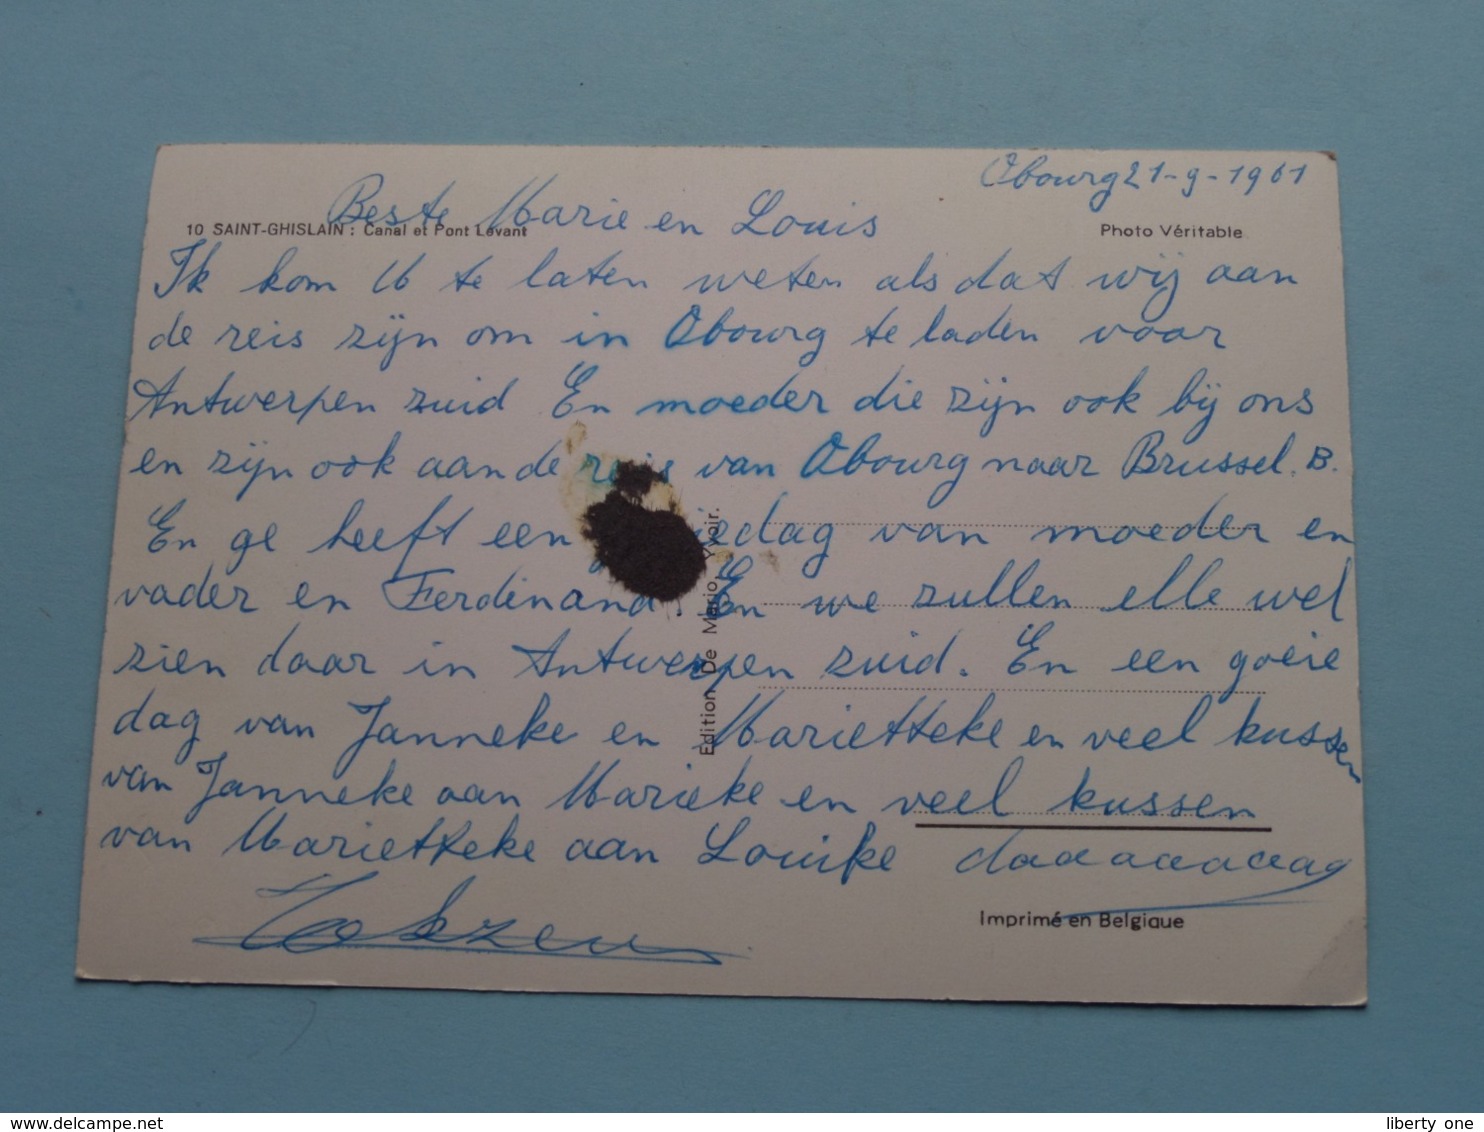 Obourg 21-9-1961
Beste Marie en Louis
10 SAINT-GHISLAIN : Canal et Pont Levant
Photo Véritable
Ik kom U te laten weten als dat wij aan
de reis zijn om in Obourg te laden voor
Antwerpen zuid En moeder die zijn ook bij ons
en zijn ook aan de reis van Obourg naar Brussel. B.
En ge heeft een dag van moeder en
vader en Ferdinand. En we zullen elle wel
zien daar in Antwerpen zuid. En een goeie
dag van Janneke en Marietteke en veel kussen
van Janneke aan Marieke en veel kussen
van Marietteke aan Louike daaaaaaaag
Edition De Mario, Yvoir.
Imprimé en Belgique
delcampe.net
liberty one